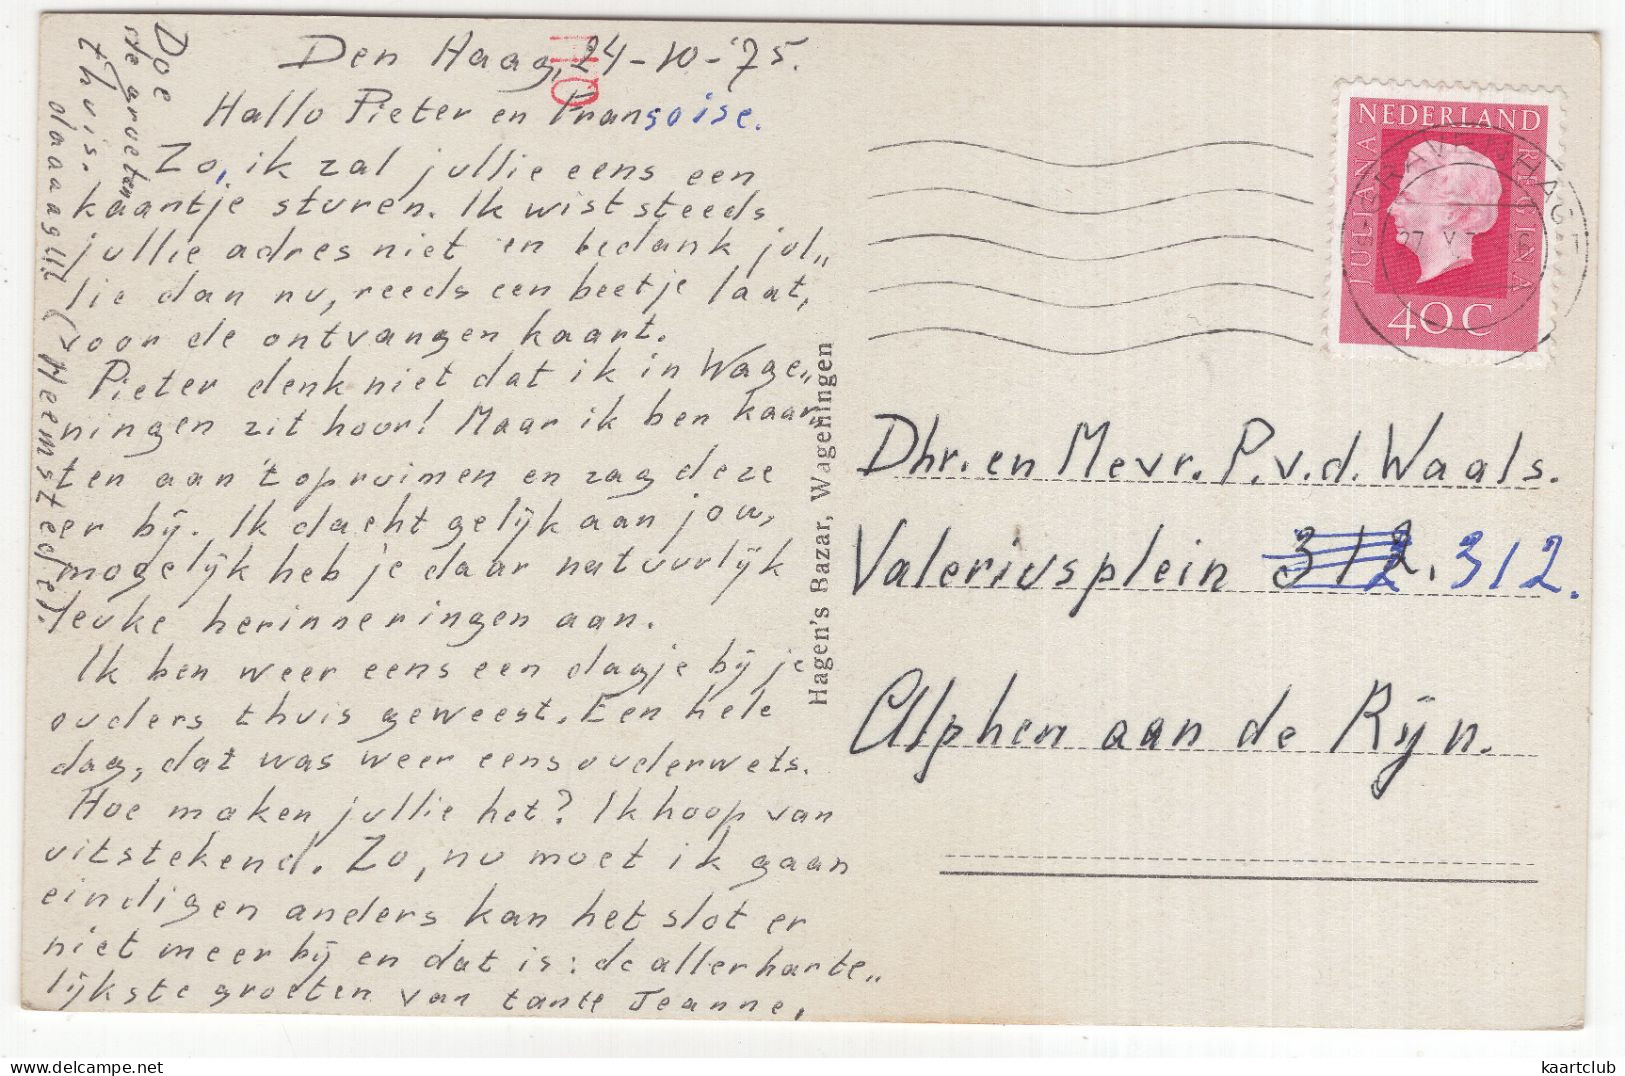 Den Haag, 24-10-'75.
Hallo Pieter en Françoise.
Zo, ik zal jullie eens een
kaantje sturen. Ik wist steeds
jullie adres niet en bedank jol„
lie dan nu, reeds een beetje laat,
voor de ontvangen kaart.
Pieter denk niet dat ik in Wage„
ningen zit hoor! Maar ik ben kaar„
ten aan 't opruimen en zag deze
er bij. Ik dacht gelijk aan jou,
mogelijk heb je daar natuurlijk
leuke herinneringen aan.
Ik ben weer eens een dagje bij je
ouders thuis geweest. Een hele
dag, dat was weer eens ouderwets.
Hoe maken jullie het? Ik hoop van
uitstekend. Zo, nu moet ik gaan
eindigen anders kan het slot er
niet meer bij en dat is: de allerharte„
lijkste groeten van tante Jeanne,
Doe
de groeten
thuis.
(Heemstedje).
Hagen's Bazar, Wageningen
NEDERLAND
JULIANA
REGINA
40C
'S-GRAVENHAGE
Dhr. en Mevr. P. v. d. Waals.
Valeriusplein 312. 312.
Alphen aan de Rijn.
kaartclub